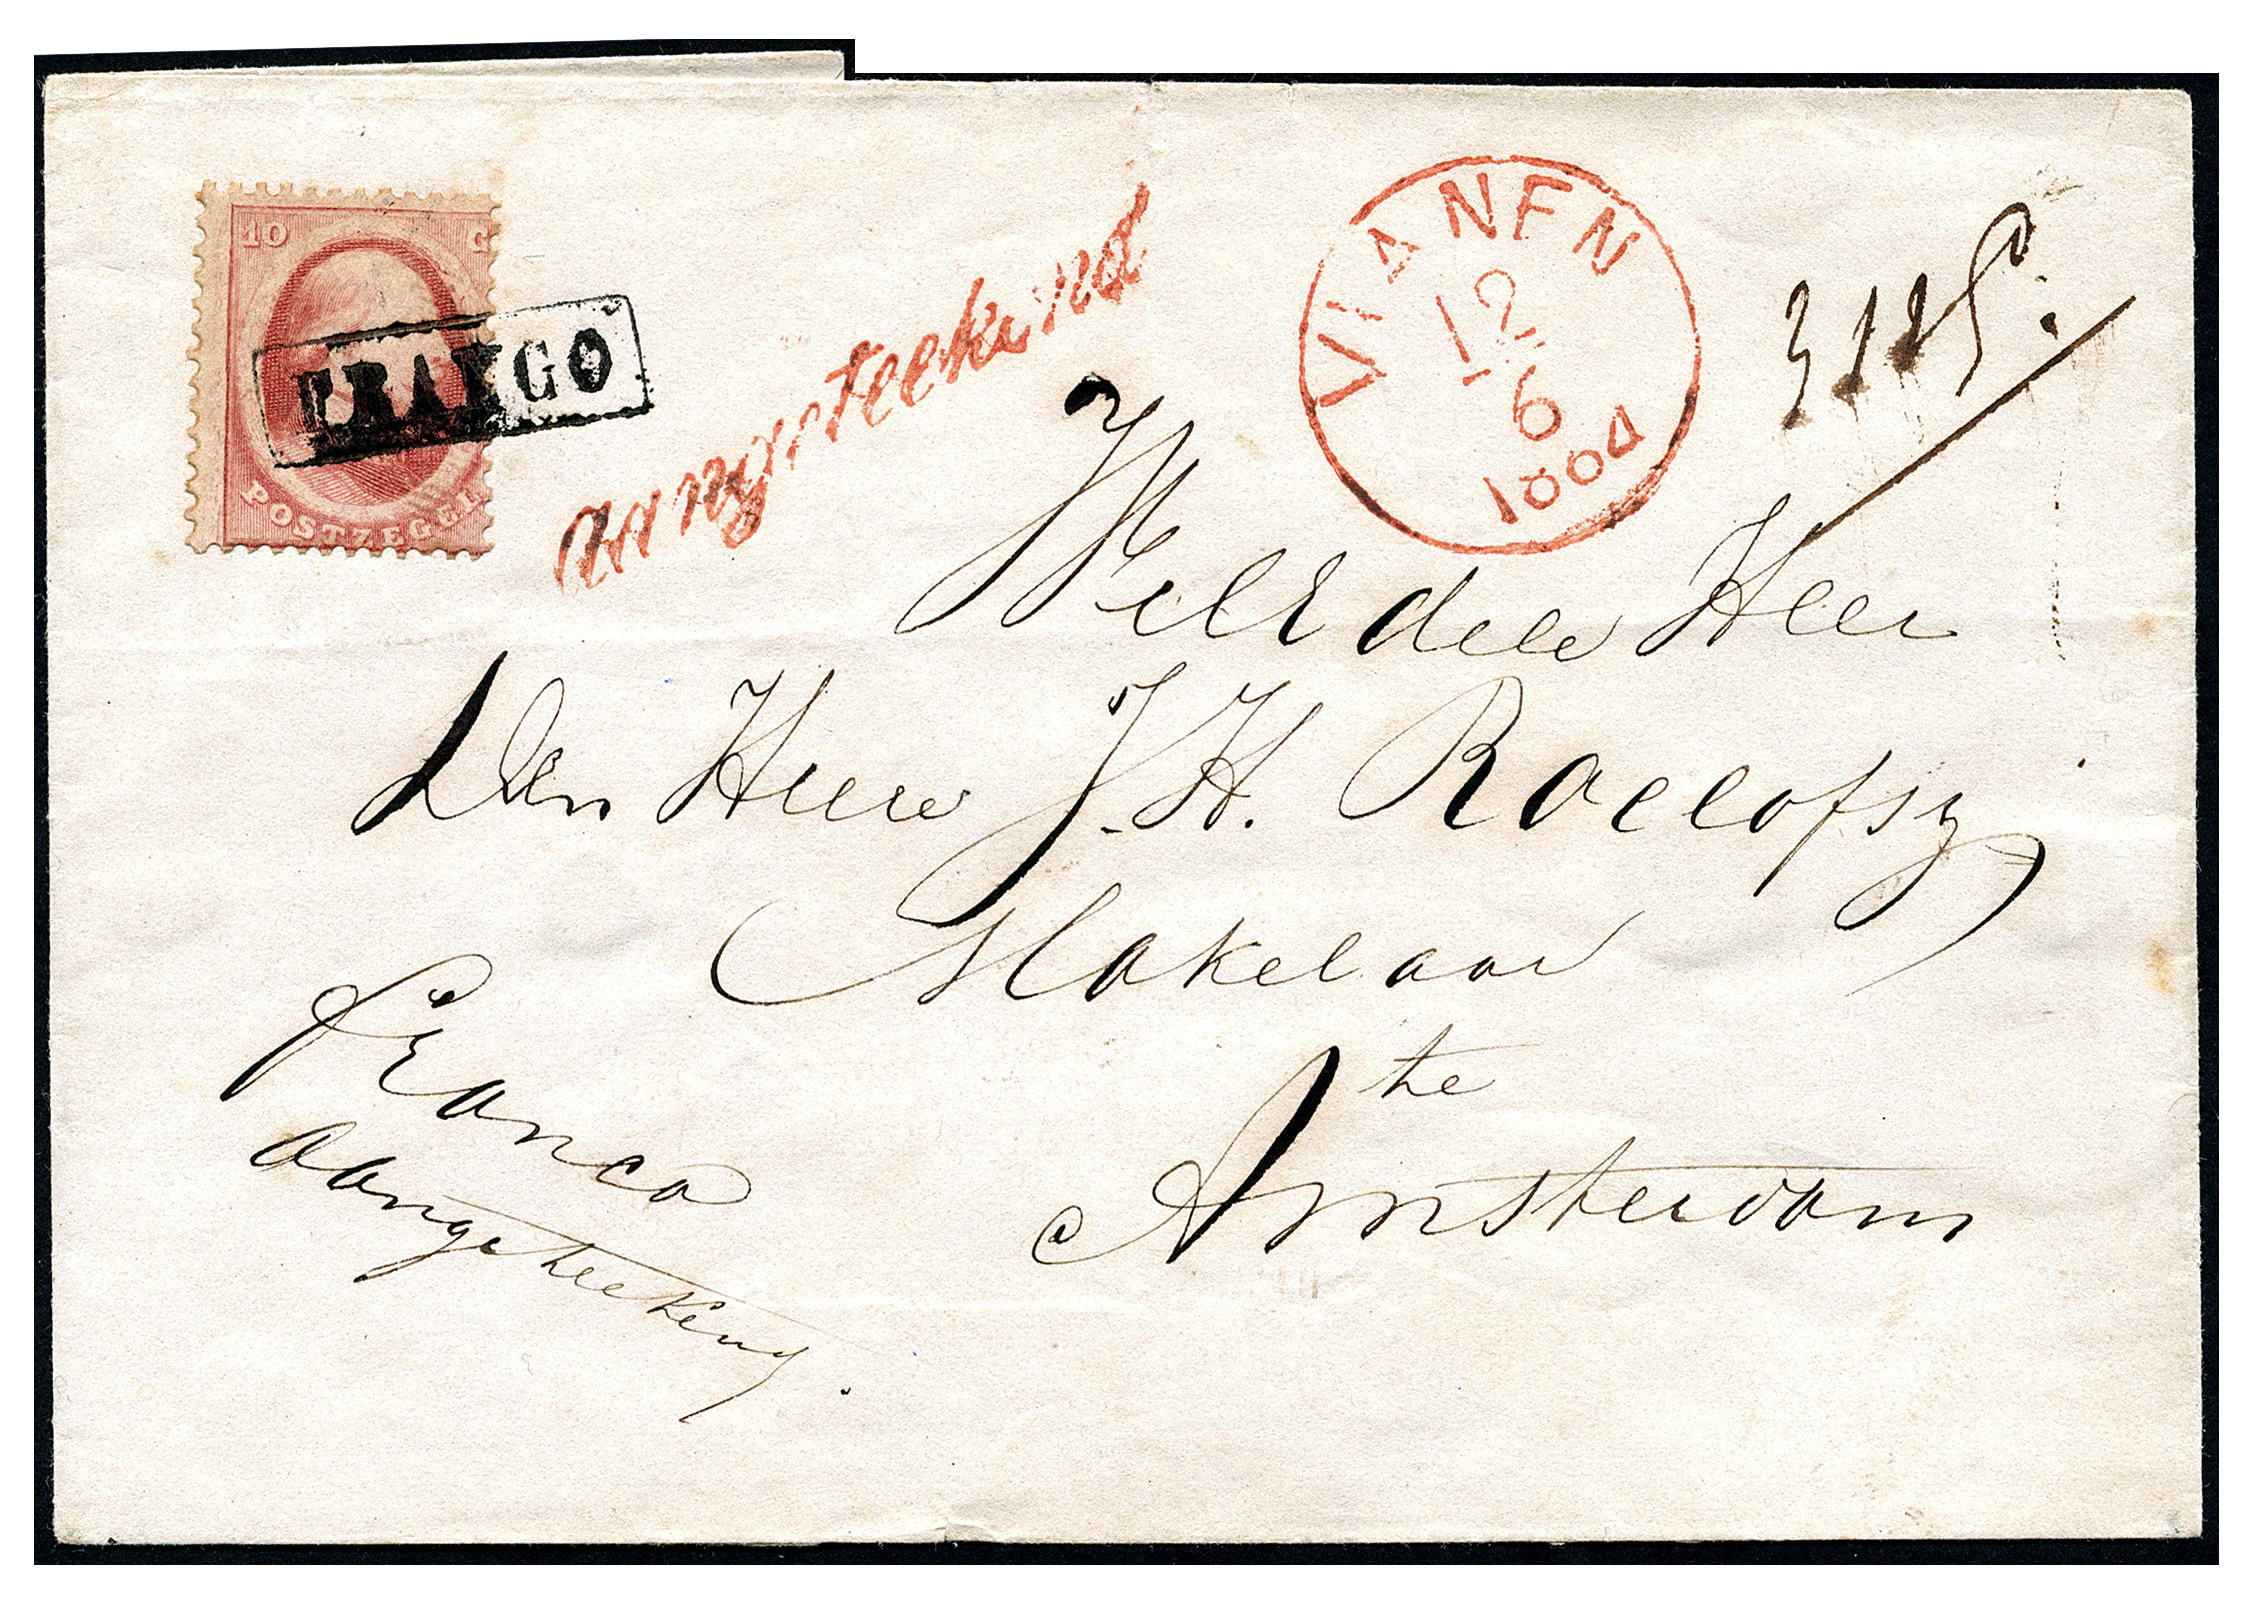 10 C
POSTZEGEL
FRANCO
Aangeteekend
VIANEN
12
6
1864
WelEdele Heer
Den Heere J. H. Roelofsz
Makelaar
te
Amsterdam
Franco
aangeteekend.